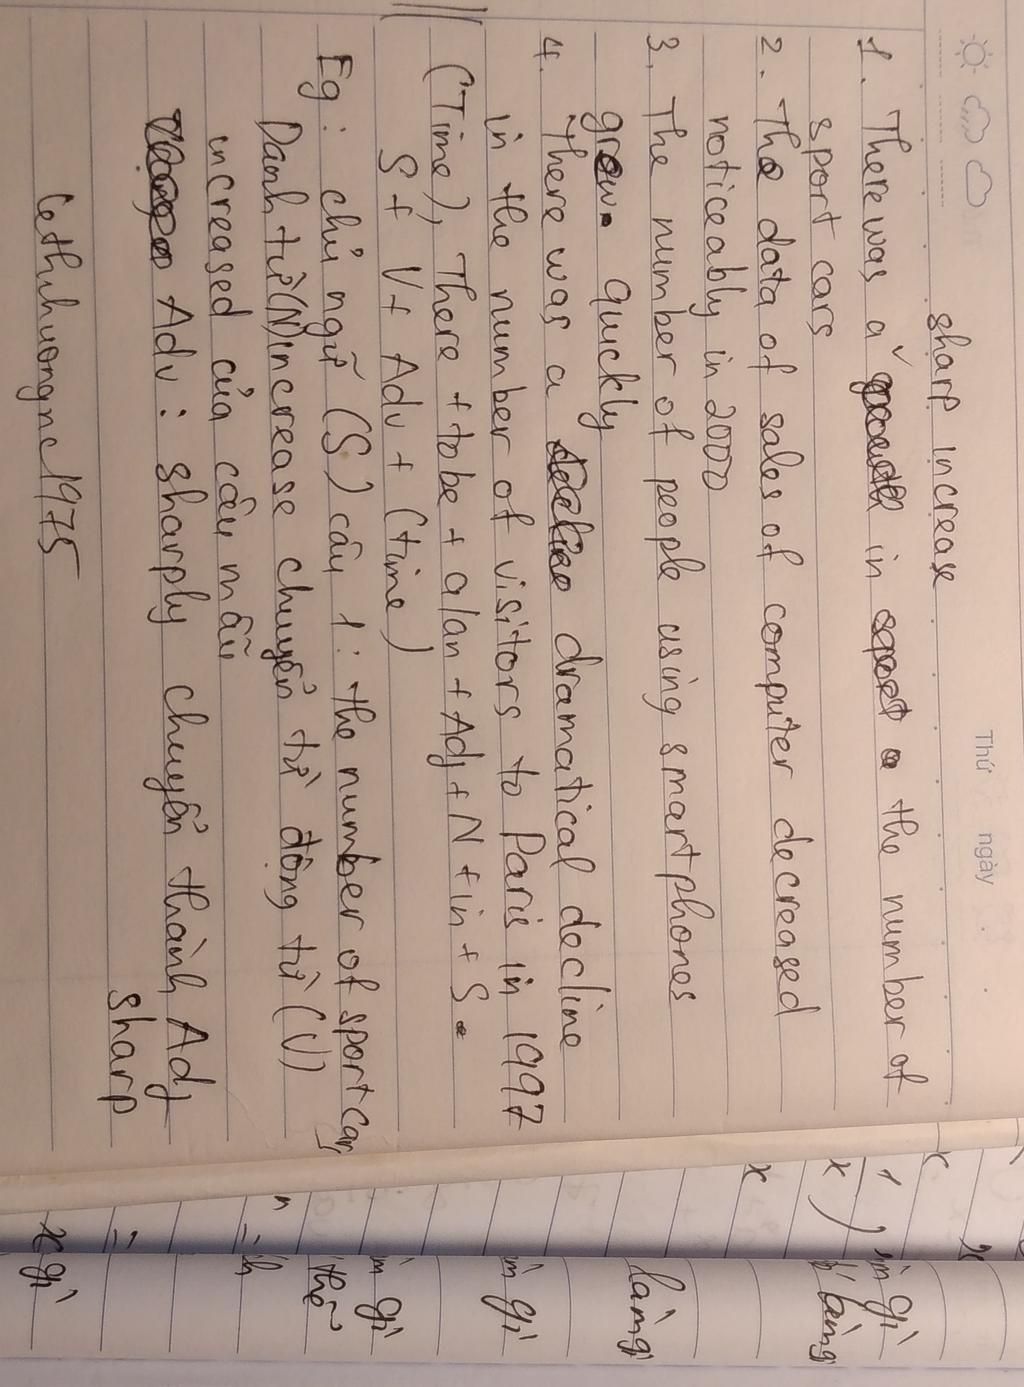 Thứ ngày
sharp increase
1. There was a in the number of
sport cars
2. The data of sales of computer decreased
noticeably in 2000
3. The number of people using smartphones
grew quickly
4. There was a dramatical decline
in the number of visitors to Paris in 1997
(Time), There + tobe + a/an + Adj + N + in + S.
S + V + Adv + (time)
Eg: chủ ngữ (S) câu 1: the number of sport cars
Danh từ (N) increase chuyển từ động từ (V)
increased của câu mẫu
Adv: sharply chuyển thành Adj
sharp
lethihuongnc1975
x
x
x
gì
làm gì
gì
gì
thế
x gì